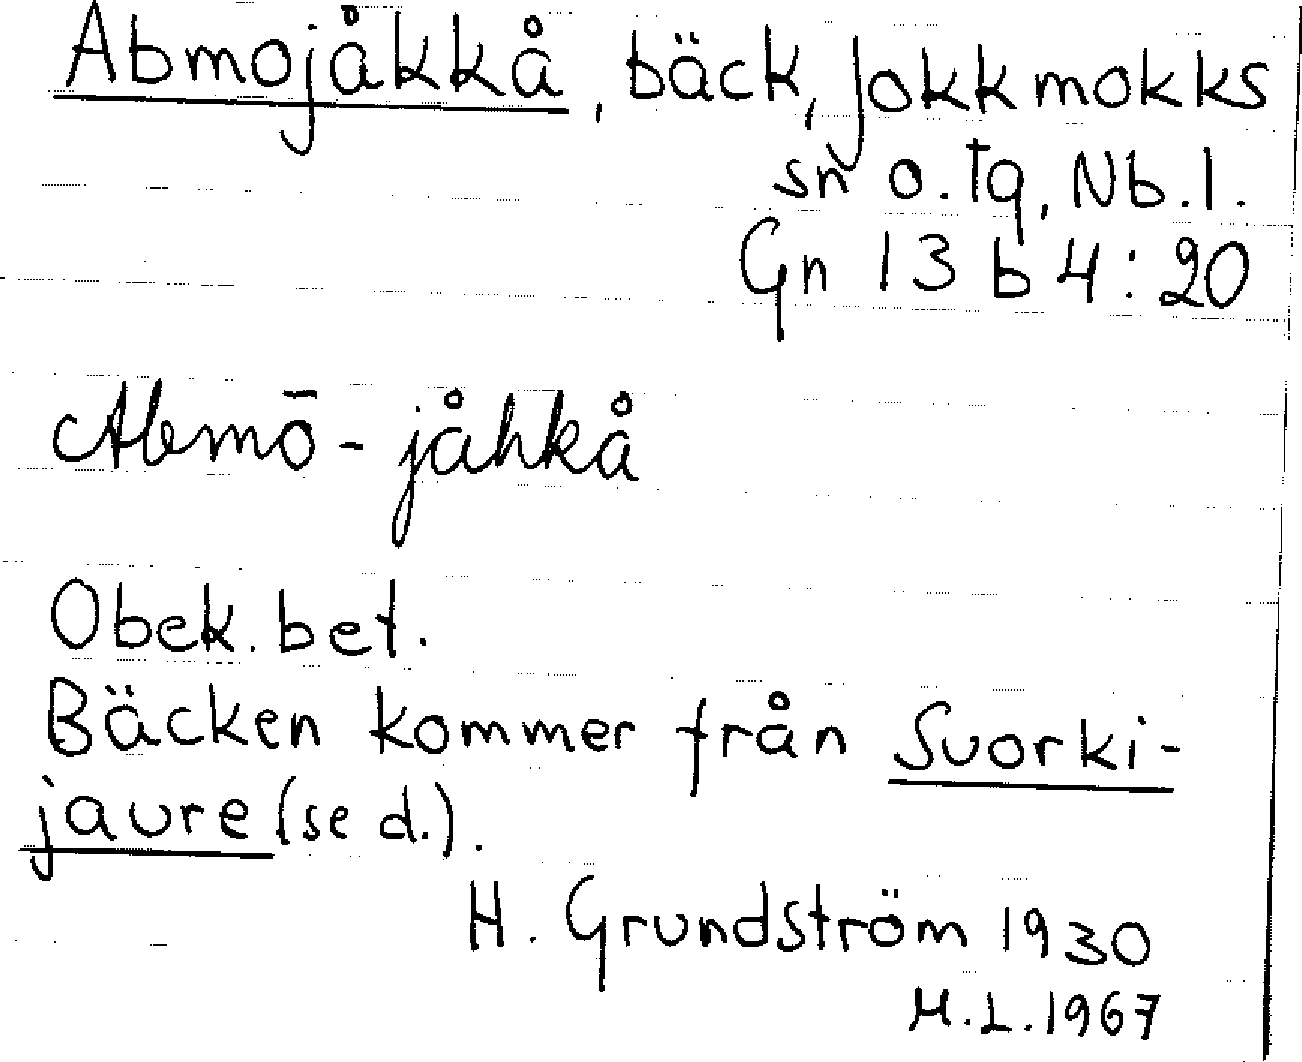 Abmojåkkå, bäck, Jokkmokks
sn o. tg, Nb. l.
Gn 13 b 4:20
Abmō-jåhkå
Obek. bet.
Bäcken kommer från Suorki-
jaure (se d.).
H. Grundström 1930
M.L. 1967